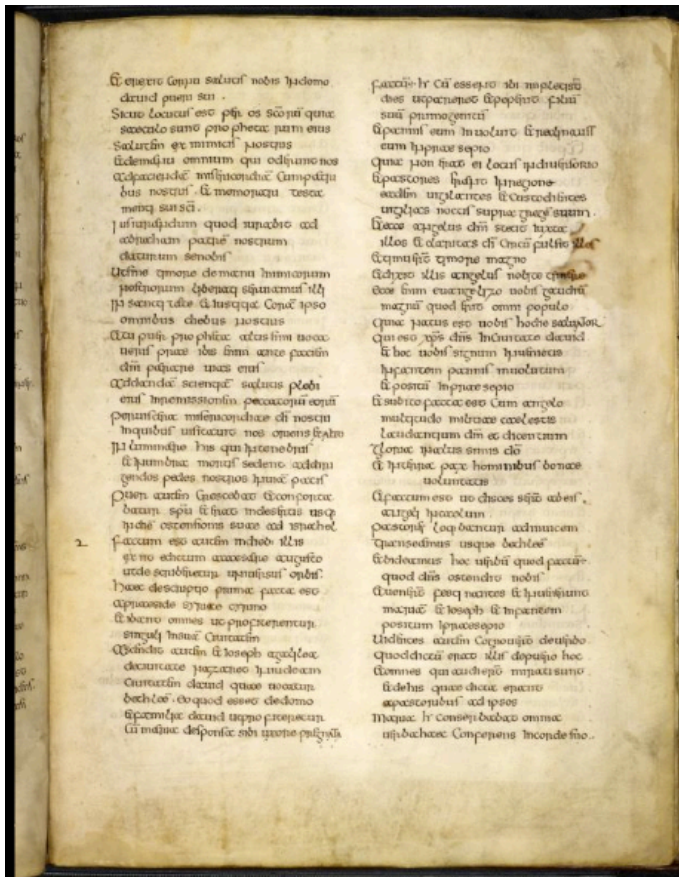 & erexit cornu salutis nobis in domo
dauid pueri sui .
Sicut locutus est per os scōrū quia
saeculo sunt prophetarum eius
Salutem ex inimicis nostris
& demanu omnium qui oderunt nos
Adfaciendā misericordiā cumpatri
bus nostris & memorari testa
menti sui sci .
Iusiurandum quod iurabit ad
abraham patrē nostrum
daturum senobis
Ut sine timore demanu inimicorum
nostrorum liberati seruiamus illi
In sanctitate & iustitia corā ipso
omnibus diebus nostris
& tu puer propheta altissimi uoca
ueris praeibis enim ante faciem
dni parare uias eius
Addandā scientiā salutis plebi
eius inremissionem peccatorū eorū
Peruiscera misericordiae di nostri
inquibus uisitauit nos oriens exalto
Inluminare his qui intenebris
& inumbra mortis sedent addiri
gendos pedes nostros inuia pacis
Puer autem crescebat & conforta
batur spu & erat indesertis usq
indiē ostensionis suae ad israhel
2
Factum est autem indieb illis
exiit edictum acaesare augusto
utdescriberetur uniuersus orbis .
Haec descriptio prima facta est
apraeside syriae cyrino
& ibant omnes ut profiterentur
singuli insuā ciuitatem
Ascendit autem & ioseph agalilea
deciuitate nazareth iniudeam
ciuitatem dauid quae uocatur
bethleē . eo quod esset dedomo
& familia dauid utprofiteretur
Cū maria desponsata sibi uxore
factū . hr Cū essent ibi impletisū
dies utpareret & peperit filiū
suū primogenitū
& pannis eum inuoluit & reclinauit
eum inpraesepio
Quia non erat ei locus indiuersorio
& pastores erant inregione
eadem uigilantes & custodientes
uigilias noctis supra gregē suum .
& ecce angelus dni stetit iuxta
illos & claritas di circū fulsit illos
& timuerunt timore magno
& dixit illis angelus nolite timere
Ecce enim euangelizo uobis gaudiū
magnū quod erit omni populo
Quia natus est uobis hodie saluator
qui est xps dns inciuitate dauid
& hoc uobis signum inuenietis
infantem pannis inuolutum
& positū inpraesepio
& subito facta est cum angelo
multitudo militiae caelestis
laudantium dm et dicentium
Gloria inaltissimis do
& interra pax hominibus bonae
uoluntatis
& factum est ut discesserunt abeis .
angeli incaelum .
pastores loqbantur adinuicem
Transeamus usque bethleē
& uideamus hoc uerbū quod factū .
quod dns ostendit nobis
& uenerunt festinantes & inuenerunt
mariā & ioseph & infantem
positum inpraesepio
Uidentes autem cognouerunt deuerbo
quoddictū erat illis depuero hoc
& omnes qui audierunt mirati sunt
& dehis quae dicta erant
apastoribus ad ipsos
Maria hr conseruabat omnia
uerba haec conferens incorde suo ..